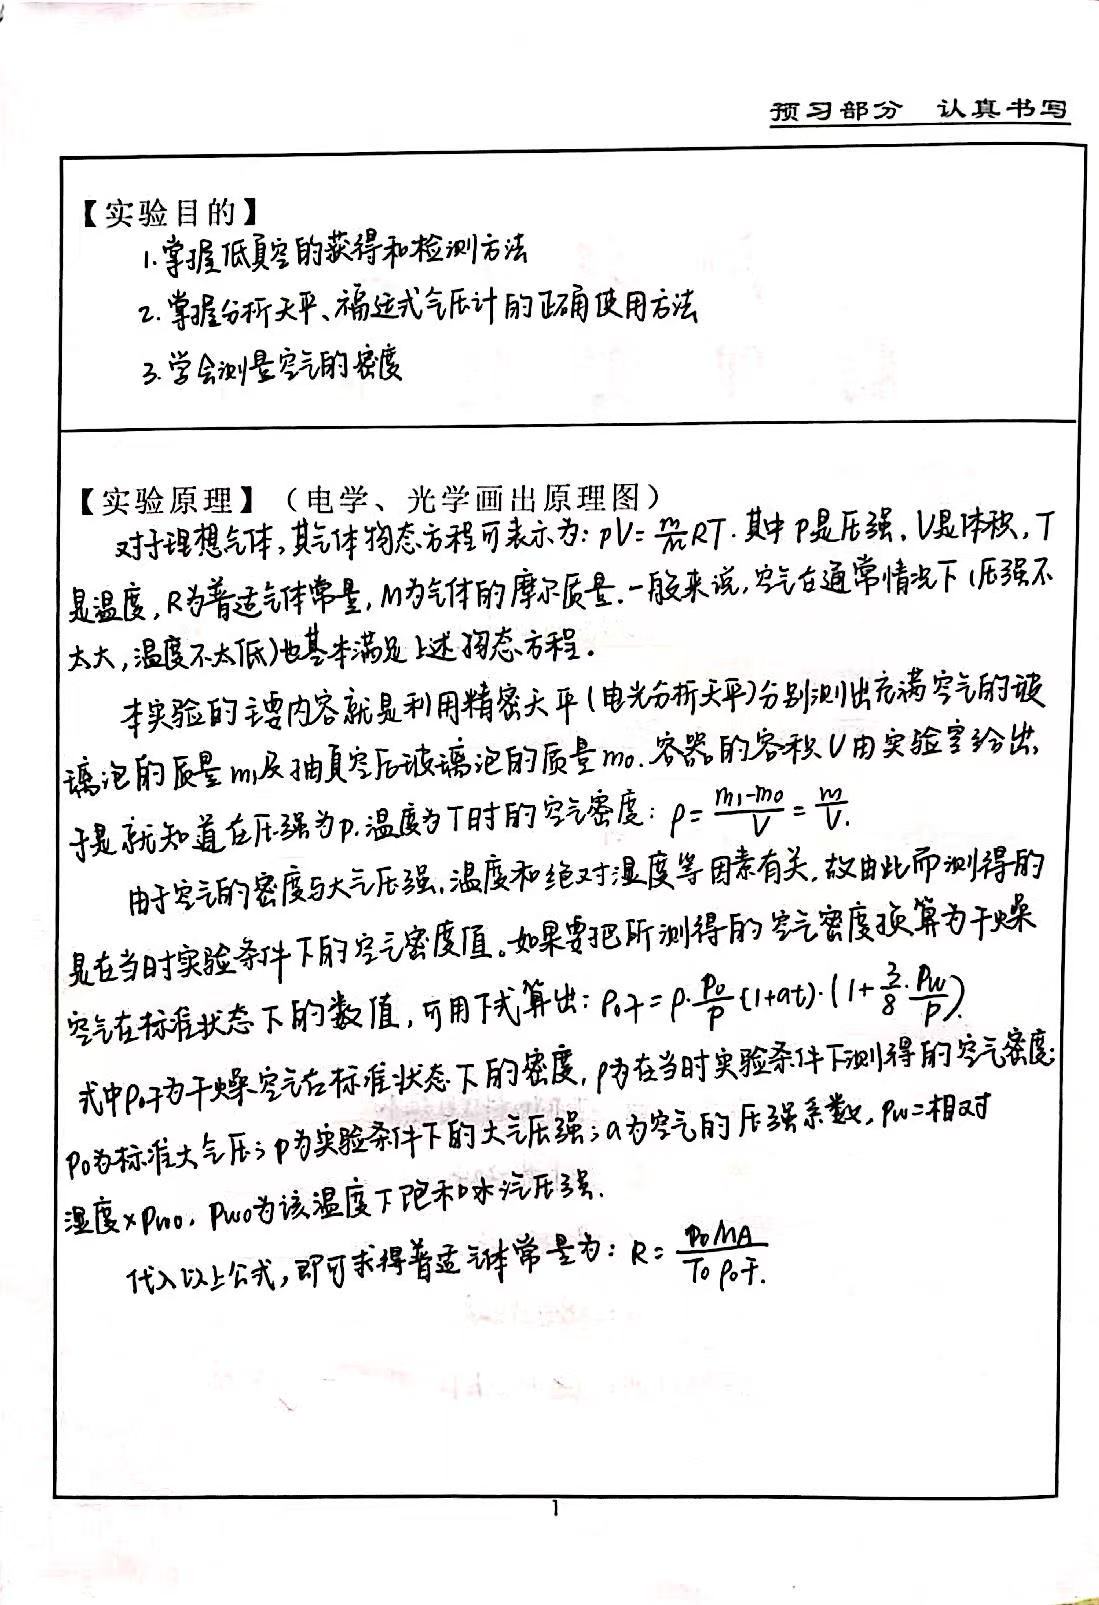 预习部分 认真书写
【实验目的】
1. 掌握低真空的获得和检测方法
2. 掌握分析天平、福廷式气压计的正确使用方法
3. 学会测量空气的密度
【实验原理】（电学、光学画出原理图）
对于理想气体，其气体物态方程可表示为：pV=m/M RT．其中P是压强，V是体积，T
是温度，R为普适气体常量，M为气体的摩尔质量．一般来说，空气在通常情况下（压强不
太大，温度不太低）也基本满足上述物态方程．
本实验的主要内容就是利用精密天平（电光分析天平）分别测出充满空气的玻
璃泡的质量m₁及抽真空后玻璃泡的质量m₀．容器的容积V由实验室给出，
于是就知道在压强为p．温度为T时的空气密度：ρ=(m₁-m₀)/V=m/V.
由于空气的密度与大气压强，温度和绝对湿度等因素有关，故由此而测得的
是在当时实验条件下的空气密度值。如果要把所测得的空气密度换算为干燥
空气在标准状态下的数值，可用下式算出：ρ₀干=ρ·p₀/p(1+at)·(1+3/8·pw/p).
式中ρ₀干为干燥空气在标准状态下的密度，ρ为在当时实验条件下测得的空气密度；
p₀为标准大气压；p为实验条件下的大气压强；a为空气的压强系数，pw=相对
湿度×pwo．pwo为该温度下饱和水汽压强．
代入以上公式，即可求得普适气体常量为：R=p₀MA/T₀ρ₀干.
1